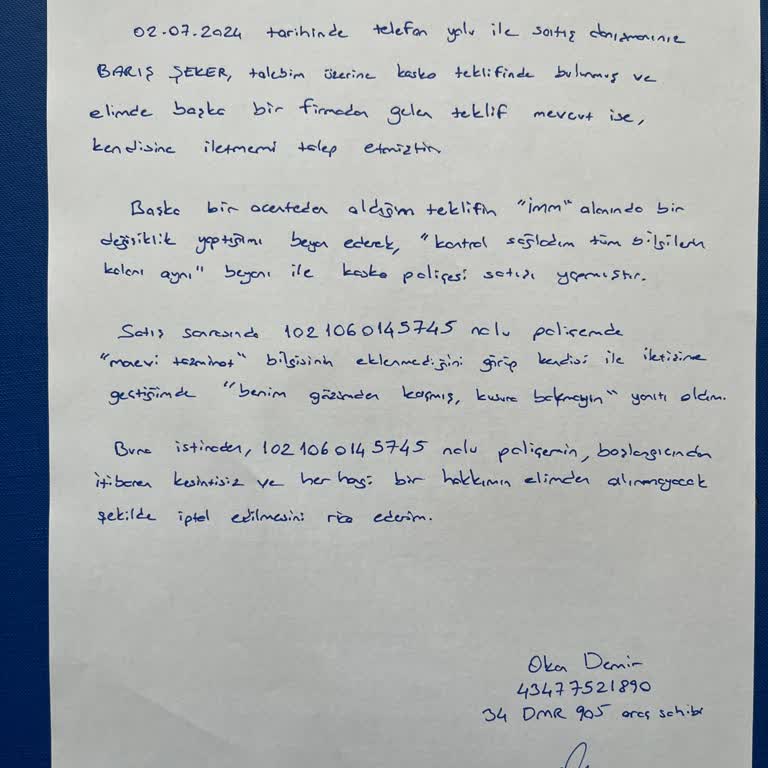 02.07.2024 tarihinde telefon yolu ile satış danışmanınız
BARIŞ ŞEKER, talebim üzerine kasko teklifinde bulunmuş ve
elimde başka bir firmadan gelen teklif mevcut ise,
kendisine iletmemi talep etmiştir.
Başka bir acenteden aldığım teklifin "imm" alanında bir
değişiklik yaptığımı beyan ederek, "kontrol sağladım tüm bilgilerin
kalanı aynı" beyanı ile kasko poliçesi satışı yapmıştır.
Satış sonrasında 1021060145745 nolu poliçemde
"manevi tazminat" bilgisinin eklenmediğini görüp kendisi ile iletişime
geçtiğimde "benim gözümden kaçmış, kusura bakmayın" yanıtı aldım.
Buna istinaden, 1021060145745 nolu poliçemin, başlangıcından
itibaren kesintisiz ve herhangi bir hakkımın elimden alınmayacak
şekilde iptal edilmesini rica ederim.
Okan Demir
43477521890
34 DMR 905 araç sahibi